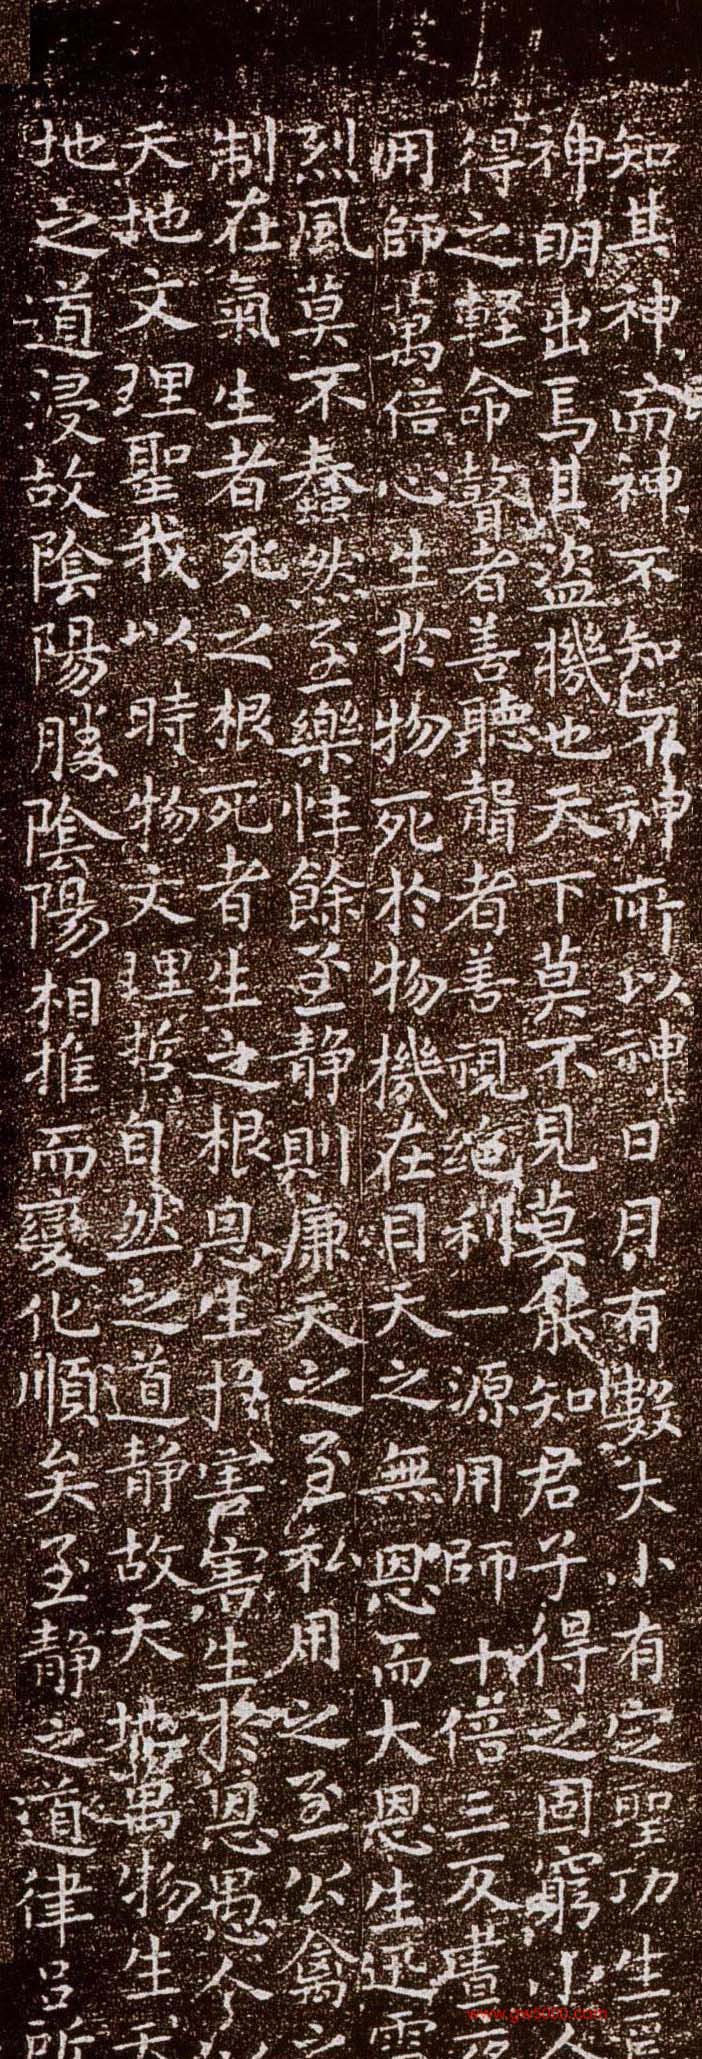 知其神而神不知不神所以神日月有數大小有定聖功生焉
神明出焉其盜機也天下莫不見莫能知君子得之固窮小人
得之輕命瞽者善聽聾者善視絕利一源用師十倍三反晝夜
用師萬倍心生於物死於物機在目天之無恩而大恩生迅雷
烈風莫不蠢然至樂性餘至静則廉天之至私用之至公禽之
制在氣生者死之根死者生之根恩生於害害生於恩愚人以
天地文理聖我以時物文理哲自然之道静故天地萬物生天
地之道浸故陰陽勝陰陽相推而變化順矣至静之道律呂所
www.gw5000.com